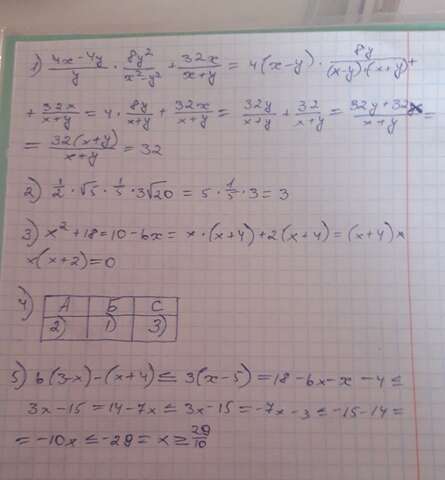 1) (4x-4y)/y · 8y²/(x²-y²) + 32x/(x+y) = 4(x-y) · 8y/((x-y)·(x+y)) +
+ 32x/(x+y) = 4 · 8y/(x+y) + 32x/(x+y) = 32y/(x+y) + 32/(x+y) = (32y+32x)/(x+y) =
= 32(x+y)/(x+y) = 32
2) 1/2 · √5 · 1/5 · 3√20 = 5 · 1/5 · 3 = 3
3) x² + 18 = 10 - 6x = x · (x+4) + 2(x+4) = (x+4) ×
×(x+2) = 0
4) А Б С
2) 1) 3)
5) 6(3-x)-(x+4) ≤ 3(x-5) = 18-6x-x-4 ≤
3x-15 = 14-7x ≤ 3x-15 = -7x-3 ≤ -15-14 =
= -10x ≤ -29 = x ≥ 29/10